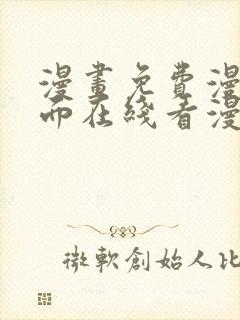 漫畫免費漫
而在綫看漫
微軟創始人比